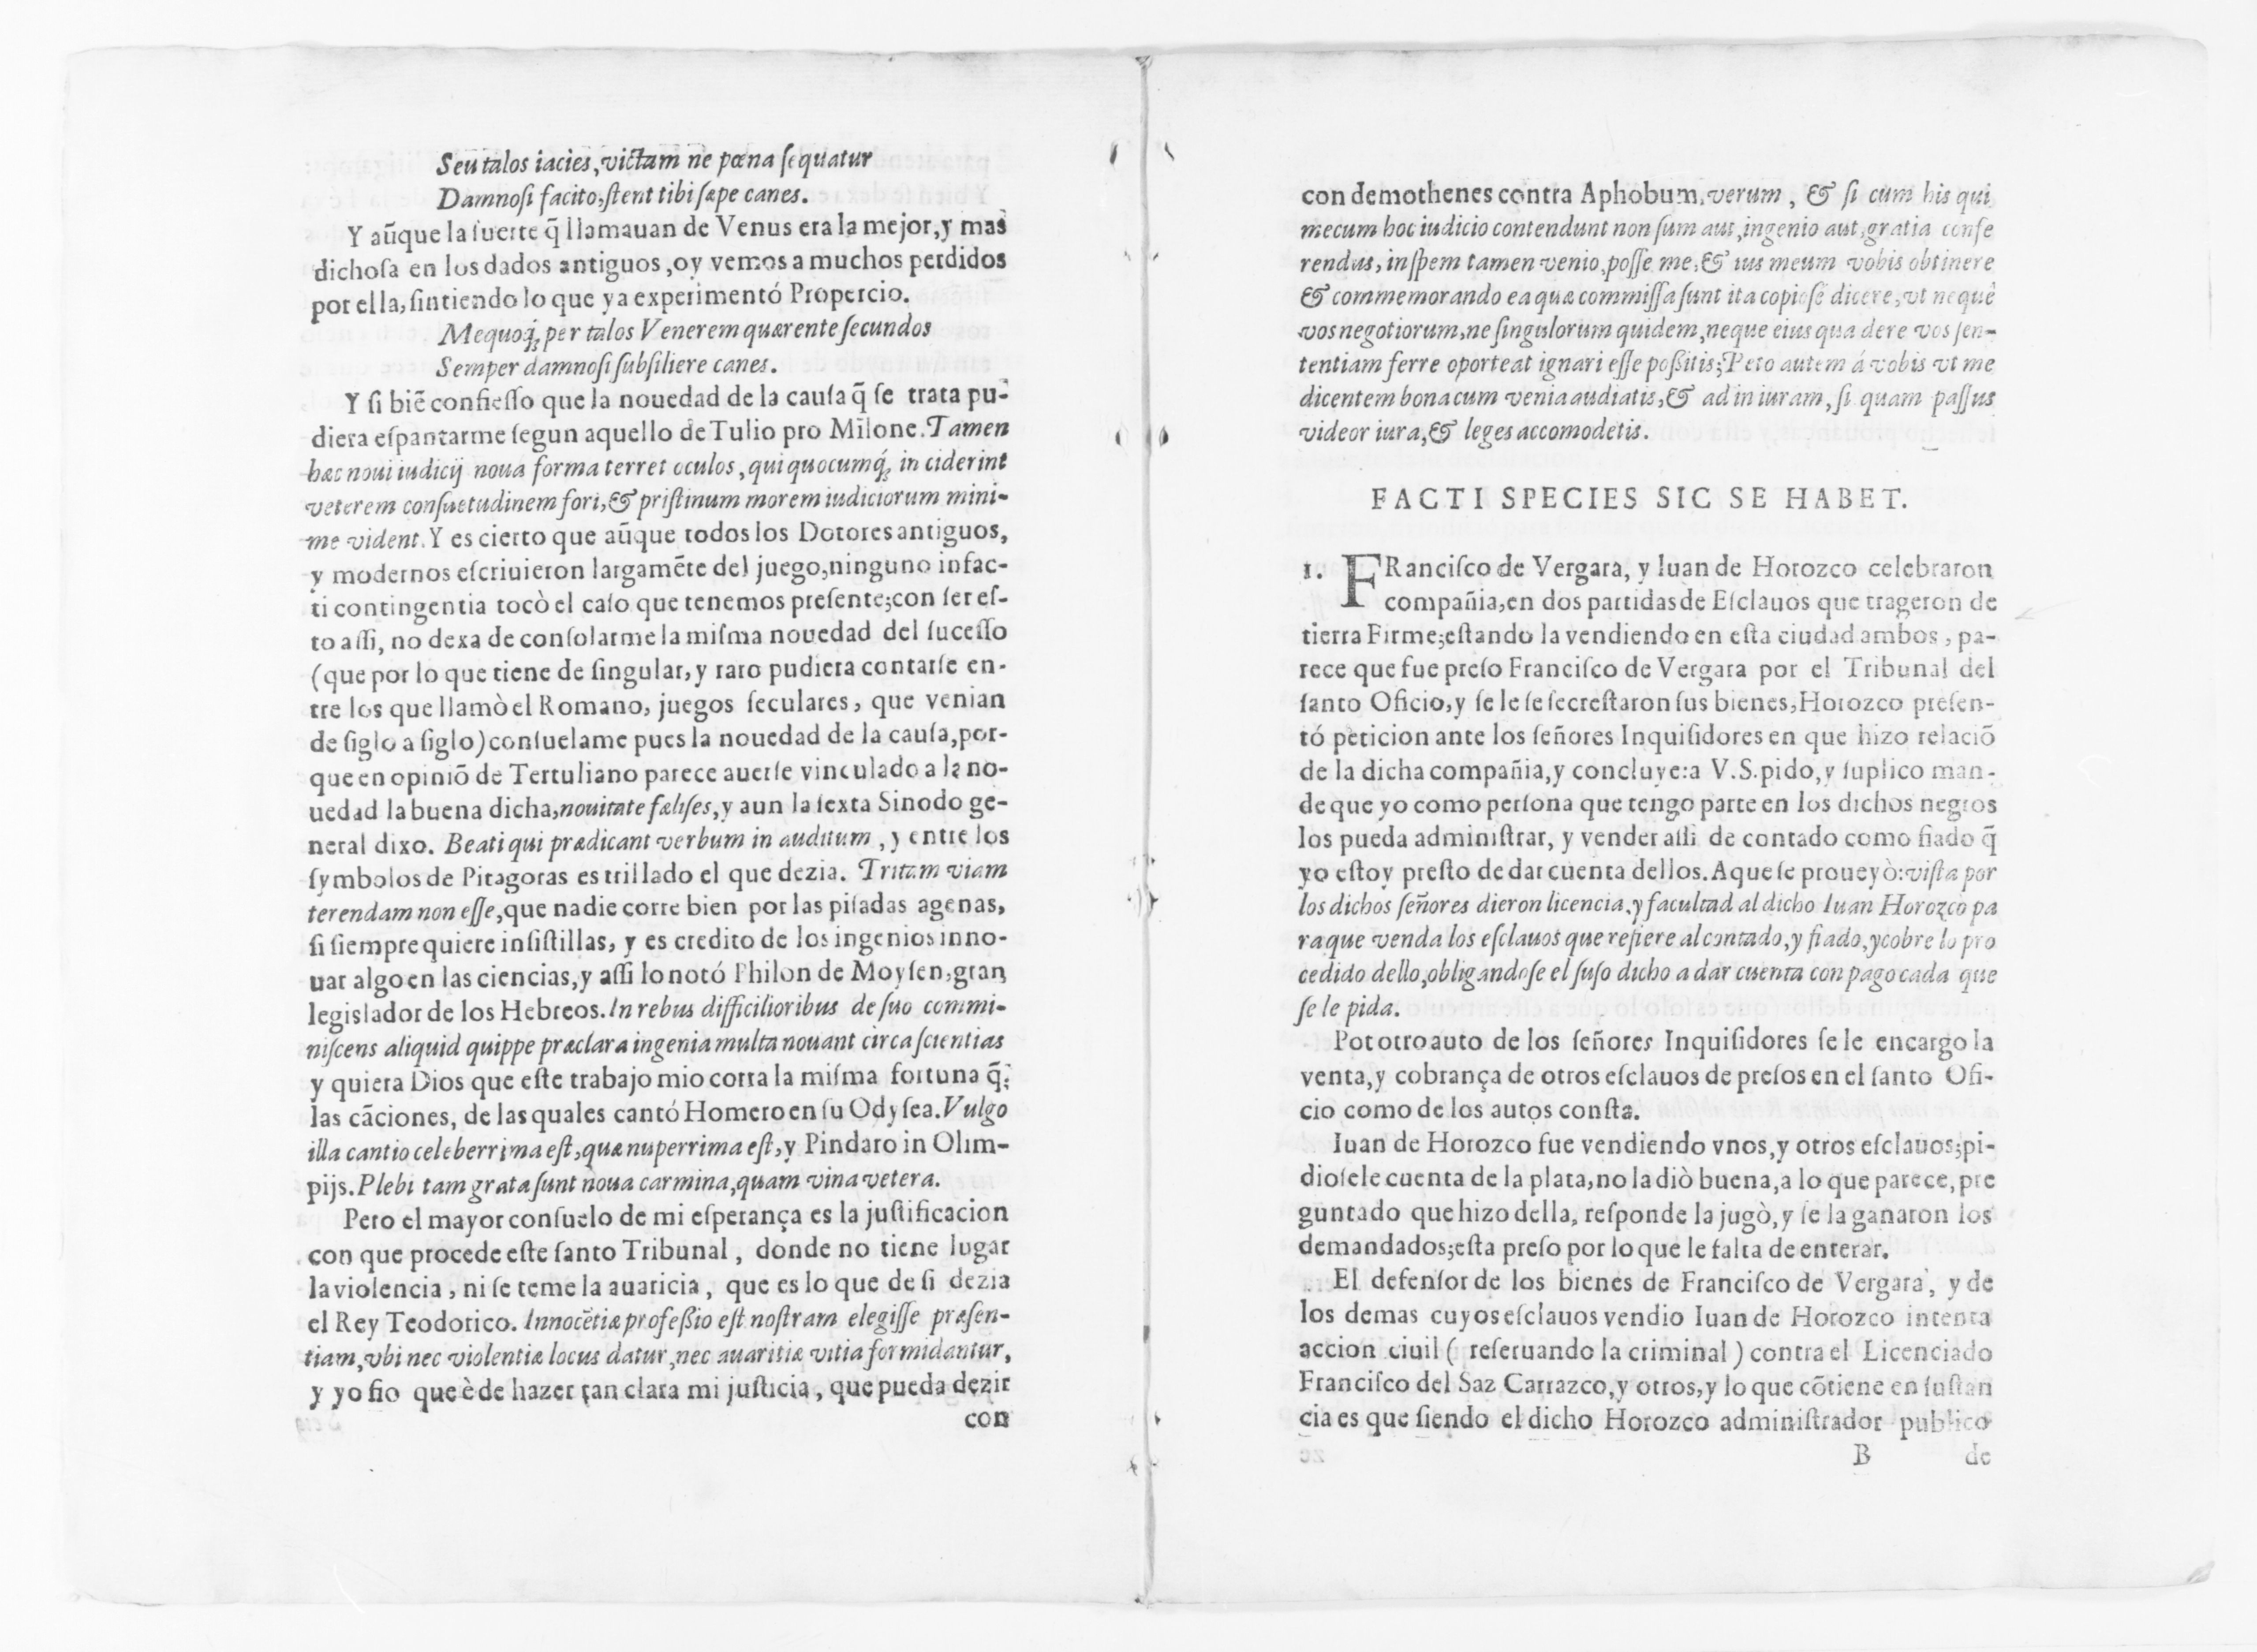 Seu talos iacies, victam ne pœna ſequatur
Damnoſi facito, ſtent tibi ſæpe canes.
Y aũque la ſuerte q̃ llamauan de Venus era la mejor, y mas
dichoſa en los dados antiguos, oy vemos a muchos perdidos
por ella, ſintiendo lo que ya experimentó Propercio.
Mequoq́; per talos Venerem quærente ſecundos
Semper damnoſi ſubſiliere canes.
Y ſi biẽ confieſſo que la nouedad de la cauſa q̃ ſe trata pu-
diera eſpantarme ſegun aquello de Tulio pro Milone. Tamen
hæc noui iudicij noua forma terret oculos, qui quocumq́; in ciderint
veterem conſuetudinem fori, & priſtinum morem iudiciorum mini-
me vident. Y es cierto que aũque todos los Dotores antiguos,
y modernos eſcriuieron largamẽte del juego, ninguno infac-
ti contingentia tocò el caſo que tenemos preſente; con ſer eſ-
to aſſi, no dexa de conſolarme la miſma nouedad del ſuceſſo
(que por lo que tiene de ſingular, y raro pudiera contarſe en-
tre los que llamò el Romano, juegos ſeculares, que venian
de ſiglo a ſiglo) conſuelame pues la nouedad de la cauſa, por-
que en opiniõ de Tertuliano parece auerſe vinculado a la no-
uedad la buena dicha, nouitate fælises, y aun la ſexta Sinodo ge-
neral dixo. Beati qui prædicant verbum in auditum, y entre los
ſymbolos de Pitagoras es trillado el que dezia. Tritam viam
terendam non eſſe, que nadie corre bien por las piſadas agenas,
ſi ſiempre quiere inſiſtillas, y es credito de los ingenios inno-
uar algo en las ciencias, y aſſi lo notó Philon de Moyſen, gran
legislador de los Hebreos. In rebus difficilioribus de ſuo commi-
niſcens aliquid quippe præclara ingenia multa nouant circa ſcientias
y quiera Dios que eſte trabajo mio corra la miſma fortuna q̃
las cãciones, de las quales cantó Homero en ſu Odyſea. Vulgo
illa cantio celeberrima eſt, quæ nuperrima eſt, y Pindaro in Olim-
pijs. Plebi tam grata ſunt noua carmina, quam vina vetera.
Pero el mayor conſuelo de mi eſperança es la juſtificacion
con que procede eſte ſanto Tribunal, donde no tiene lugar
la violencia, ni ſe teme la auaricia, que es lo que de ſi dezia
el Rey Teodorico. Innocẽtiæ profeßio eſt noſtram elegiſſe præſen-
tiam, vbi nec violentiæ locus datur, nec auaritiæ vitia formidantur,
y yo fio que è de hazer tan clara mi juſticia, que pueda dezir
con
con demothenes contra Aphobum. verum, & ſi cum his qui
mecum hoc iudicio contendunt non ſum aut, ingenio aut, gratia confe
rendus, inſpem tamen venio, poſſe me, & ius meum vobis obtinere
& commemorando ea quæ commiſſa ſunt ita copioſè dicere, vt nequè
vos negotiorum, ne ſingulorum quidem, neque eius qua dere vos ſen-
tentiam ferre oporteat ignari eſſe poßitis; Peto autem á vobis vt me
dicentem bona cum venia audiatis, & ad in iuram, ſi quam paſſus
videor iura, & leges accomodetis.
FACTI SPECIES SIC SE HABET.
1. FRanciſco de Vergara, y Iuan de Horozco celebraron
compañia, en dos partidas de Eſclauos que trageron de
tierra Firme; eſtando la vendiendo en eſta ciudad ambos, pa-
rece que fue preſo Franciſco de Vergara por el Tribunal del
ſanto Oficio, y ſe le ſe ſecreſtaron ſus bienes, Horozco preſen-
tó peticion ante los ſeñores Inquiſidores en que hizo relaciõ
de la dicha compañia, y concluye: a V.S. pido, y ſuplico man-
de que yo como perſona que tengo parte en los dichos negros
los pueda adminiſtrar, y vender aſſi de contado como fiado q̃
yo eſtoy preſto de dar cuenta dellos. A que ſe proueyò: viſta por
los dichos ſeñores dieron licencia, y facultad al dicho Iuan Horozco pa
ra que venda los eſclauos que refiere al contado, y fiado, y cobre lo pro
cedido dello, obligandoſe el ſuſo dicho a dar cuenta con pago cada que
ſe le pida.
Pot otro auto de los ſeñores Inquiſidores ſe le encargo la
venta, y cobrança de otros eſclauos de preſos en el ſanto Ofi-
cio como de los autos conſta.
Iuan de Horozco fue vendiendo vnos, y otros eſclauos; pi-
dioſele cuenta de la plata, no la diò buena, a lo que parece, pre
guntado que hizo della, reſponde la jugò, y ſe la ganaron los
demandados; eſta preſo por lo que le falta de enterar.
El defenſor de los bienes de Franciſco de Vergara, y de
los demas cuyos eſclauos vendio Iuan de Horozco intenta
accion ciuil (reſeruando la criminal) contra el Licenciado
Franciſco del Saz Carrazco, y otros, y lo que cõtiene en ſuſtan
cia es que ſiendo el dicho Horozco adminiſtrador publico
B de